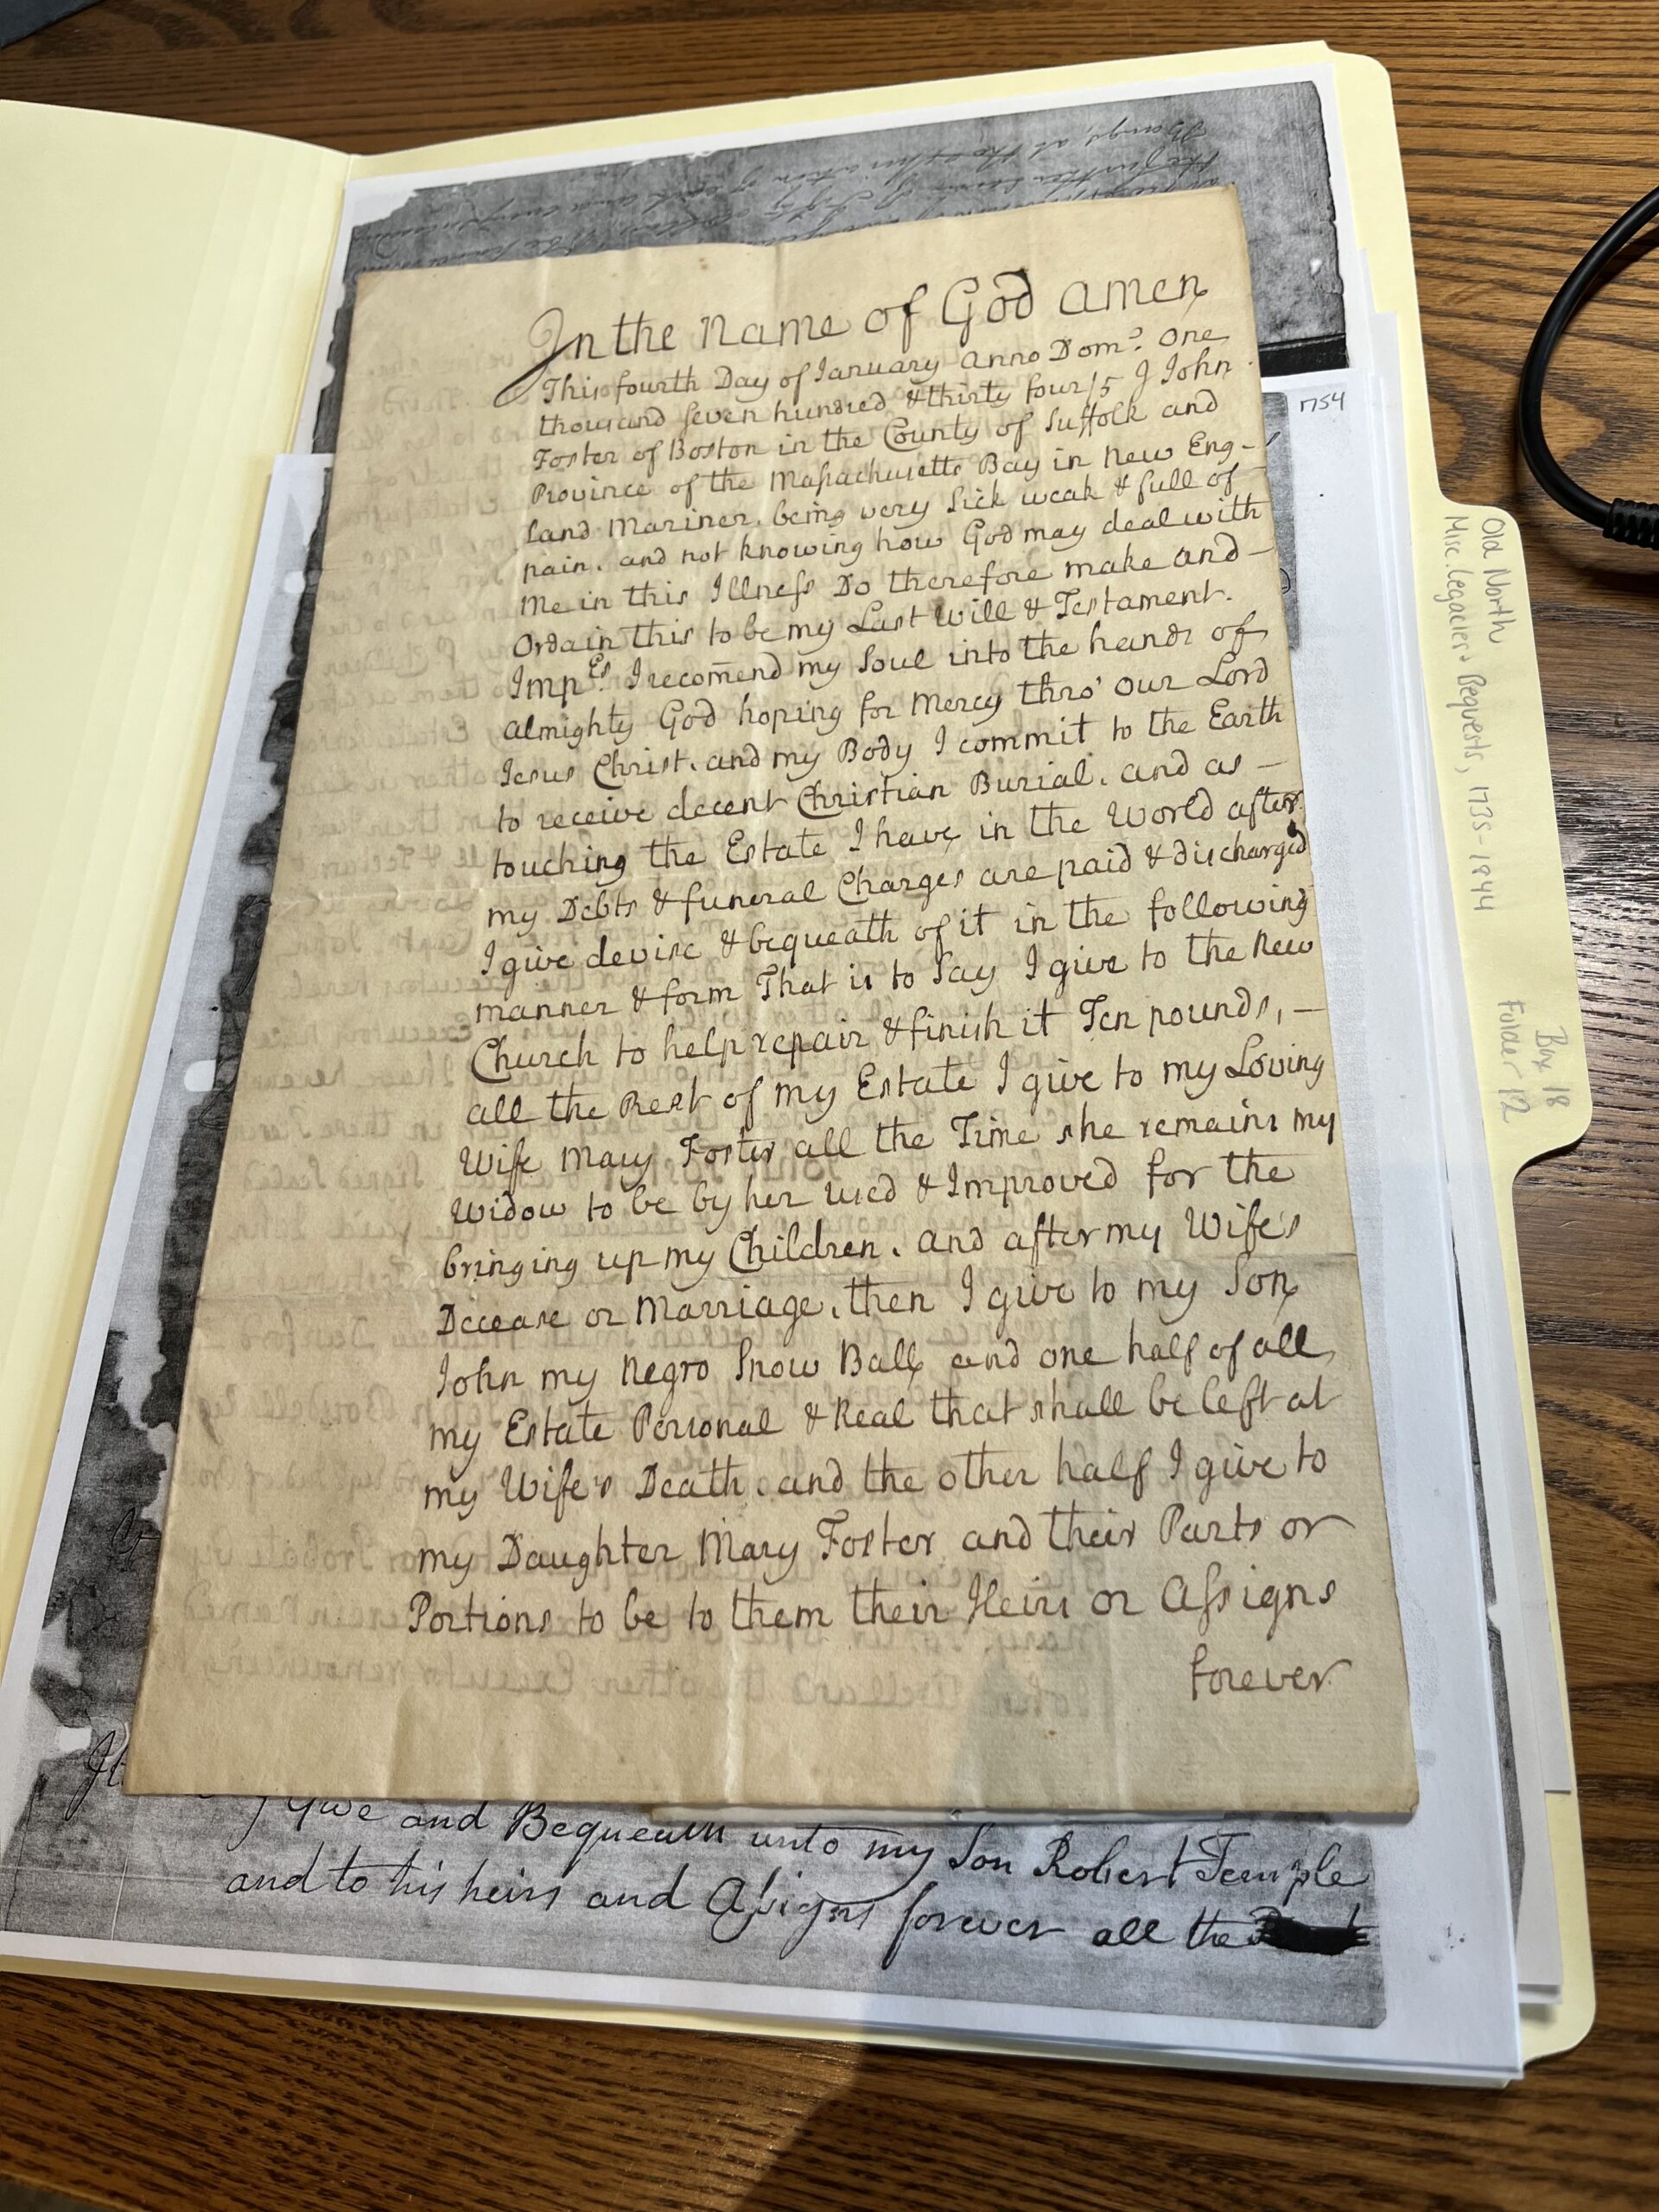 In the Name of God Amen
This fourth Day of January Anno Dom.º One
thousand seven hundred & thirty four/5 I John
Foster of Boston in the County of Suffolk and
Province of the Massachusetts Bay in New Eng-
land Mariner, being very Sick weak & full of
pain, and not knowing how God may deal with
Me in this Illness Do therefore make and-
Ordain this to be my Last Will & Testament.
Imp.es I recom̄end my Soul into the hands of
Almighty God hoping for Mercy thro' our Lord
Jesus Christ, and my Body I commit to the Earth
to receive decent Christian Burial, and as -
touching the Estate I have in the World after
my Debts & funeral Charges are paid & discharged
I give devise & bequeath of it in the following
manner & form That is to Say I give to the New
Church to help repair & finish it Ten pounds, -
all the Rest of my Estate I give to my Loving
Wife Mary Foster all the Time she remains my
Widow to be by her used & Improved for the
bringing up my Children, and after my Wife's
Decease or Marriage, then I give to my Son
John my Negro Snow Ball and one half of all
my Estate Personal & Real that shall be left at
my Wife's Death, and the other half I give to
my Daughter Mary Foster and their Parts or
Portions to be to them their Heirs or Assigns
forever
I Give and Bequeath unto my Son Robert Temple
and to his heirs and Assigns forever all the
1754
Old North
Misc. Legacies & Bequests, 1735-1844
Box 18
Folder 12